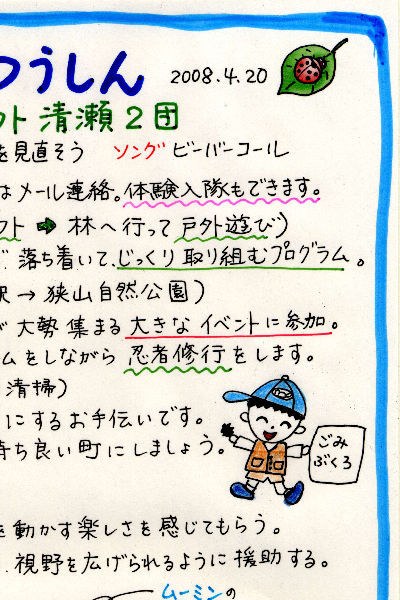 つうしん 2008.4.20
ウト 清瀬2団
を見直そう ソング ビーバーコール
はメール連絡。体験入隊もできます。
クト ➡ 林へ行って戸外遊び)
落ち着いて、じっくり取り組むプログラム。
駅→狭山自然公園)
が大勢集まる大きなイベントに参加。
ムをしながら忍者修行をします。
清掃)
にするお手伝いです。
持ち良い町にしましょう。
ごみ
ぶくろ
を動かす楽しさを感じてもらう。
視野を広げられるように援助する。
ムーミンの